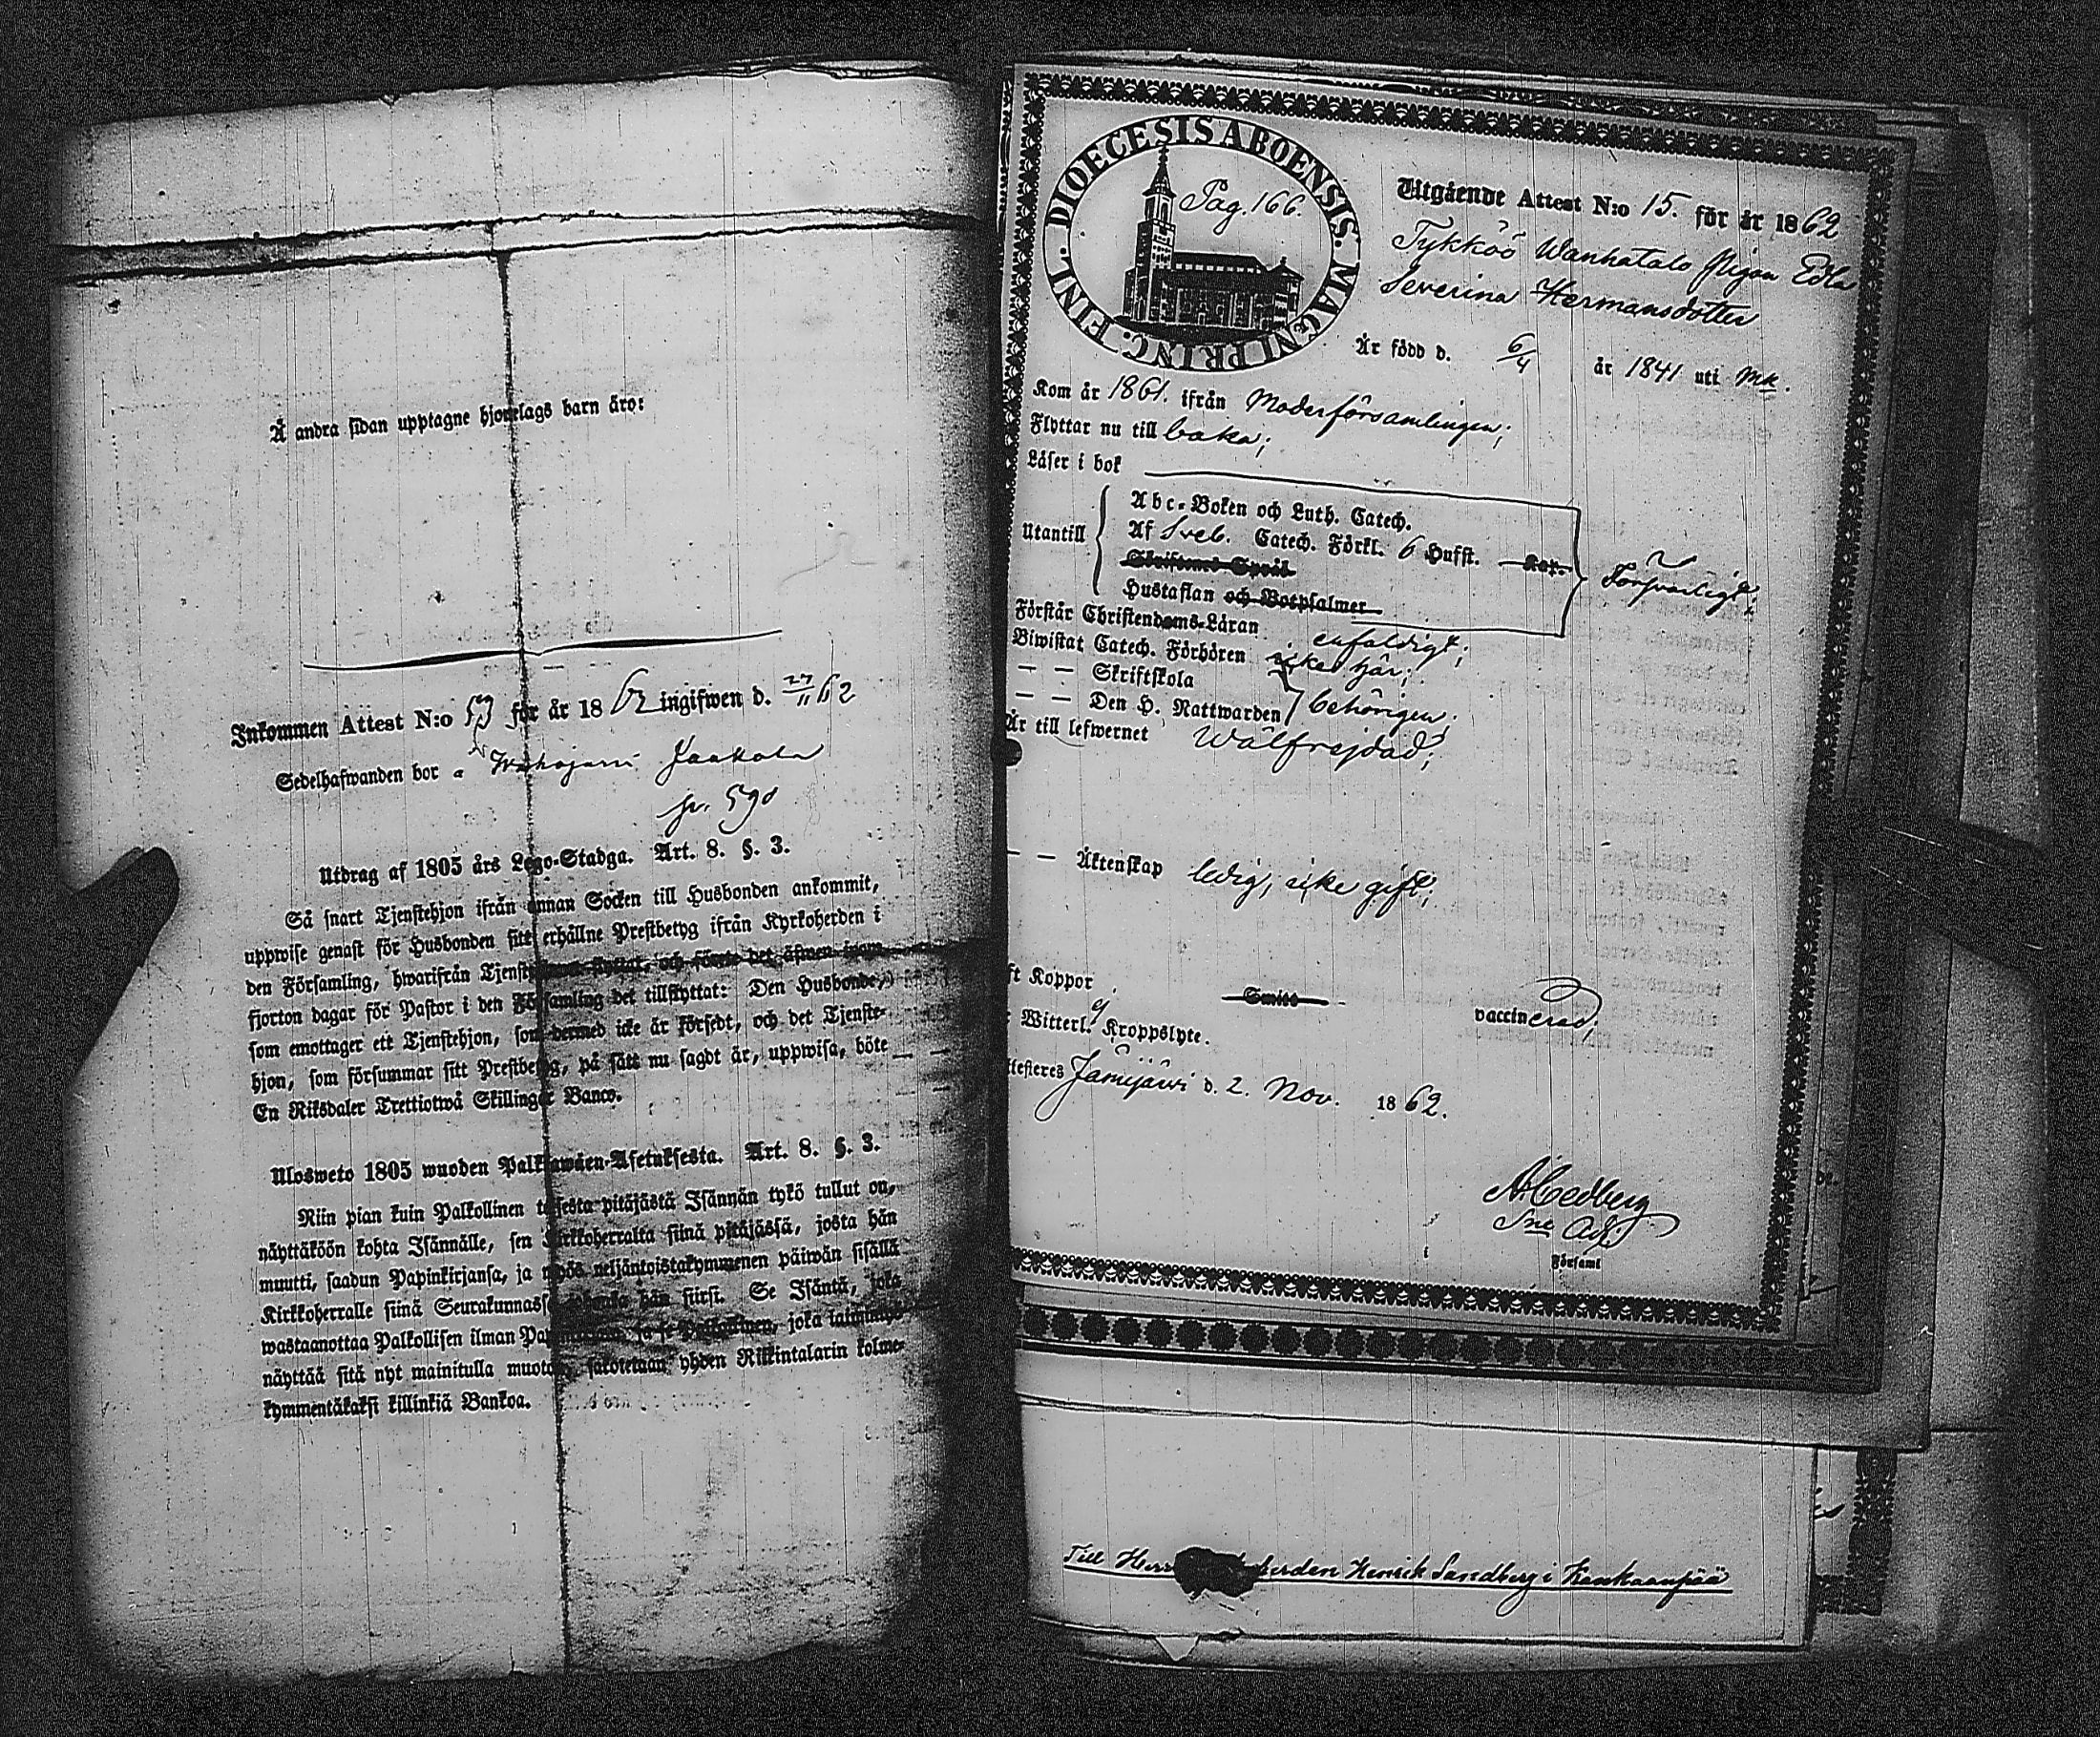 Å andra sidan upptagne hjonelags barn äro:
Inkommen Attest N:o 53 för år 1862 ingifwen d. 27/11 62
Sedelhafwanden bor Jaakola
Utdrag af 1805 års Lego-Stadga. Art. 8. §. 3.
Så snart Tjenstehjon ifrån annan Socken till Husbonden ankommit,
uppwise genast för Husbonden sitt erhållne Prestbetyg ifrån Kyrkoherden i
den Församling, hwarifrån Tjenstehjonet flyttat, och förete det äfwen inom
fjorton dagar för Pastor i den Församling det tillflyttat: Den Husbonde,
som emottager ett Tjenstehjon, som dermed icke är försedt, och det Tjenste-
hjon, som försummar sitt Prestbetyg, på sätt nu sagdt är, uppwisa, böte
En Riksdaler Trettiotwå Skillingar Banco.
Ulosweto 1805 wuoden Palkkawäen-Asetuksesta. Art. 8. §. 3.
Niin pian kuin Palkollinen toisesta pitäjästä Isännän tykö tullut on,
näyttäköön kohta Isännälle, sen Kirkkoherralta siinä pitäjässä, josta hän
muutti, saadun Papinkirjansa, ja myös neljäntoistakymmenen päiwän sisällä
Kirkkoherralle siinä Seurakunnassa, johonka hän siirsi. Se Isäntä, joka
wastaanottaa Palkollisen ilman Papinkirjata, ja se Palkollinen, joka laiminlyö
näyttää sitä nyt mainitulla muotoa, sakotetaan yhden Riikintalarin kolme-
kymmentäkaksi killinkiä Bankoa.
DIOECESIS ABOENSIS. MAGNI PRINC. FINL.
Pag. 166.
Utgående Attest N:o 15. för år 1862
Tykköö Wanhatalo pigan Edla
Severina Hermansdotter
Är född d. 6/4 år 1841 uti Mk.
Kom år 1861. ifrån Moderförsamlingen;
Flyttar nu till baka;
Läser i bok
Utantill
Abc-Boken och Luth. Catech.
Af Sveb. Catech. Förkl. 6 Hufst. Kap.
Skriftenes Språk
Hustaflan och Botpsalmer
Försvarligt;
Förstår Christendoms-Läran enfaldigt;
Biwistat Catech. Förhören icke här;
— — Skriftskola
— — Den H. Nattwarden behörigen;
Är till lefwernet Wälfrejdad;
— — Äktenskap ledig, icke gift;
ft Koppor Smitt vaccinerad;
Witterl. Kroppslyte.
ttesteres Jämijärvi d. 2. Nov. 1862.
A. Cedberg
Sne Adj.
Församl
Till Herr Henrik Sandberg i Kankaanpää